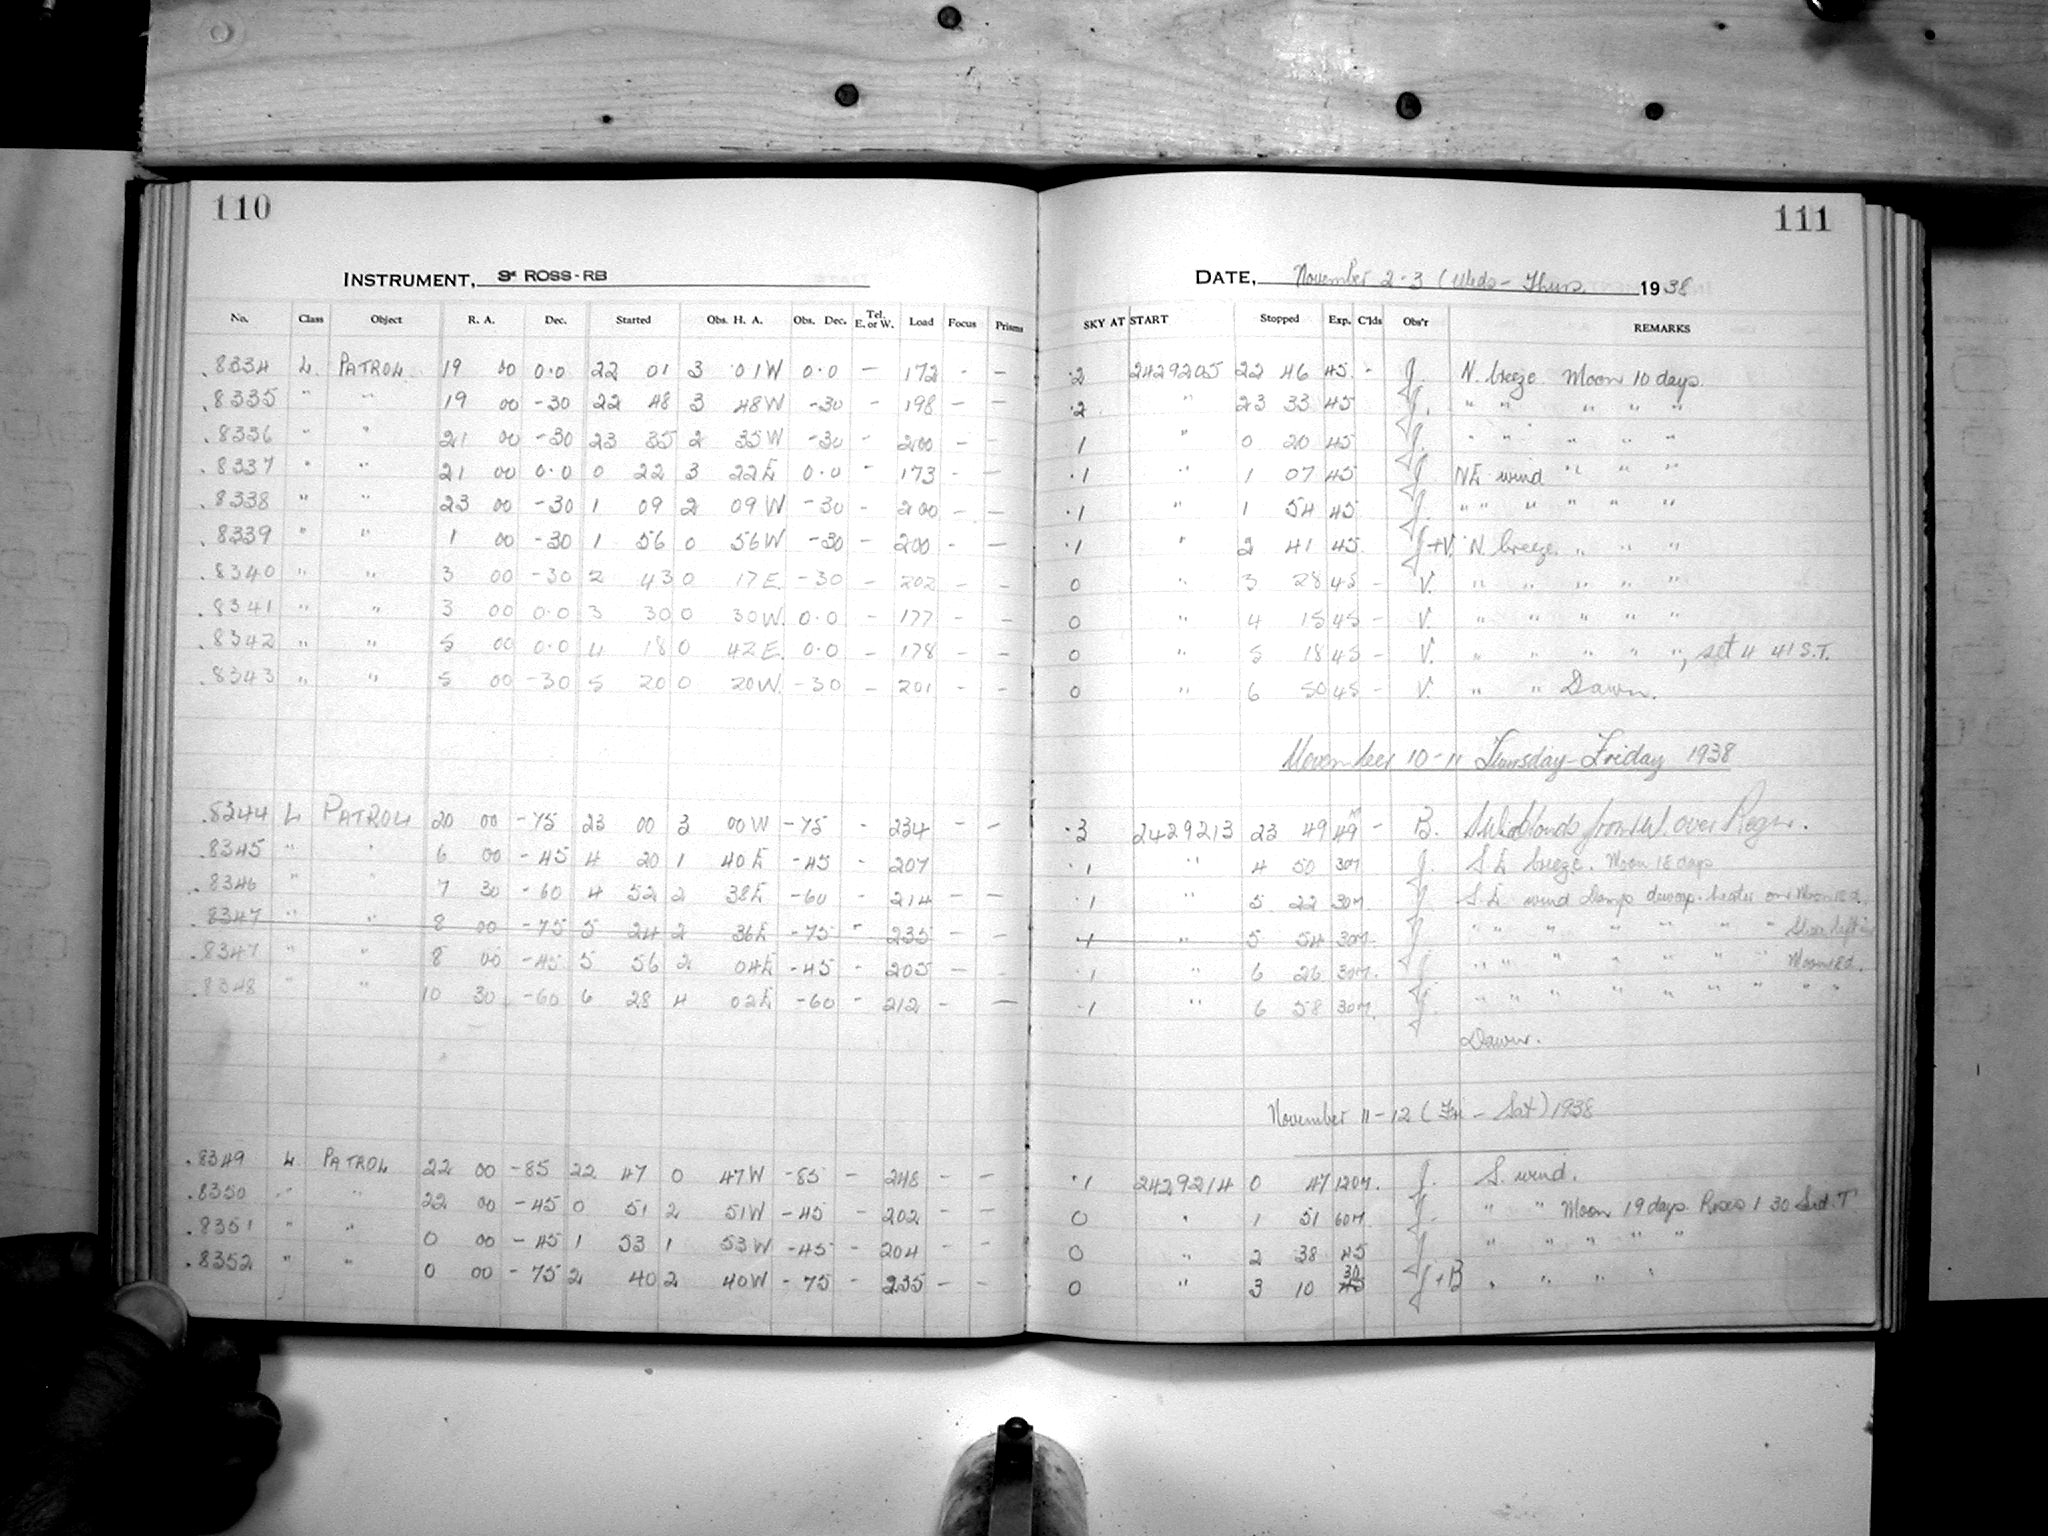 110
INSTRUMENT, 3" ROSS-RB
No. Class Object R. A. Dec. Started Obs. H. A. Obs. Dec. Tel. E. or W. Load Focus Prisms
.8334 L. PATROL 19 00 0.0 22 01 3 01W 0.0 — 172 - —
.8335 " " 19 00 -30 22 48 3 48W -30 - 198 - —
.8336 " " 21 00 -30 23 35 2 35W -30 - 200 - —
.8337 " " 21 00 0.0 0 22 3 22E 0.0 - 173 - —
.8338 " " 23 00 -30 1 09 2 09W -30 - 200 - —
.8339 " " 1 00 -30 1 56 0 56W -30 - 200 - —
.8340 " " 3 00 -30 2 43 0 17E. -30 - 202 - —
.8341 " " 3 00 0.0 3 30 0 30W. 0.0 - 177 - —
.8342 " " 5 00 0.0 4 18 0 42E. 0.0 - 178 - —
.8343 " " 5 00 -30 5 20 0 20W. -30 - 201 - —
.8344 L PATROL 20 00 -75 23 00 3 00W -75 - 234 - —
.8345 " " 6 00 -45 4 20 1 40E -45 - 207
.8346 " " 7 30 -60 4 52 2 38E -60 - 214 - —
.8347 " " 8 00 -75 5 24 2 36E -75 " 235 - —
.8347 " " 8 00 -45 5 56 2 04E -45 - 205 - —
.8348 " " 10 30 -60 6 28 4 02E -60 - 212 - —
.8349 L PATROL 22 00 -85 22 47 0 47W -85 - 248 - —
.8350 " " 22 00 -45 0 51 2 51W -45 - 202 - —
.8351 " " 0 00 -45 1 53 1 53W -45 - 204 - -
.8352 " " 0 00 -75 2 40 2 40W -75 - 235 - -
111
DATE, November 2-3 (Weds - Thurs. 1938
SKY AT START Stopped Exp. C'lds Obs'r REMARKS
.2 2429205 22 46 45. - J. N. breeze Moon 10 days.
.2 " 23 33 45 J. " " " " "
1 " 0 20 45 J. " " " " "
.1 " 1 07 45 J NE wind " " "
.1 " 1 54 45 J. " " " " " "
.1 " 2 41 45 J+V. N. breeze " " "
0 " 3 28 45 - V. " " " " "
0 " 4 15 45 - V. " " " " "
0 " 5 18 45 - V. " " " " ", set 4 41 S.T.
0 " 6 50 45 - V. " " Dawn.
November 10-11 Thursday-Friday 1938
.3 2429213 23 49 49 - B. from W. over Region.
.1 " 4 50 30m J. S.E breeze. Moon 18 days
.1 " 5 22 30m J. S.E wind heater on Moon 18 d.
1 " 5 54 30m. J. " " " " " "
.1 " 6 26 30m. J. " " " " " " Moon 18d.
.1 " 6 58 30m. J. " " " " " " " "
Dawn.
November 11-12 (Fri - Sat) 1938
.1 2429214 0 47 120m. J. S. wind.
0 " 1 51 60m. J. " " Moon 19 days. Rises 1 30 Sid. T
0 " 2 38 45 J. " " " " "
0 " 3 10 30 J+B " " " "